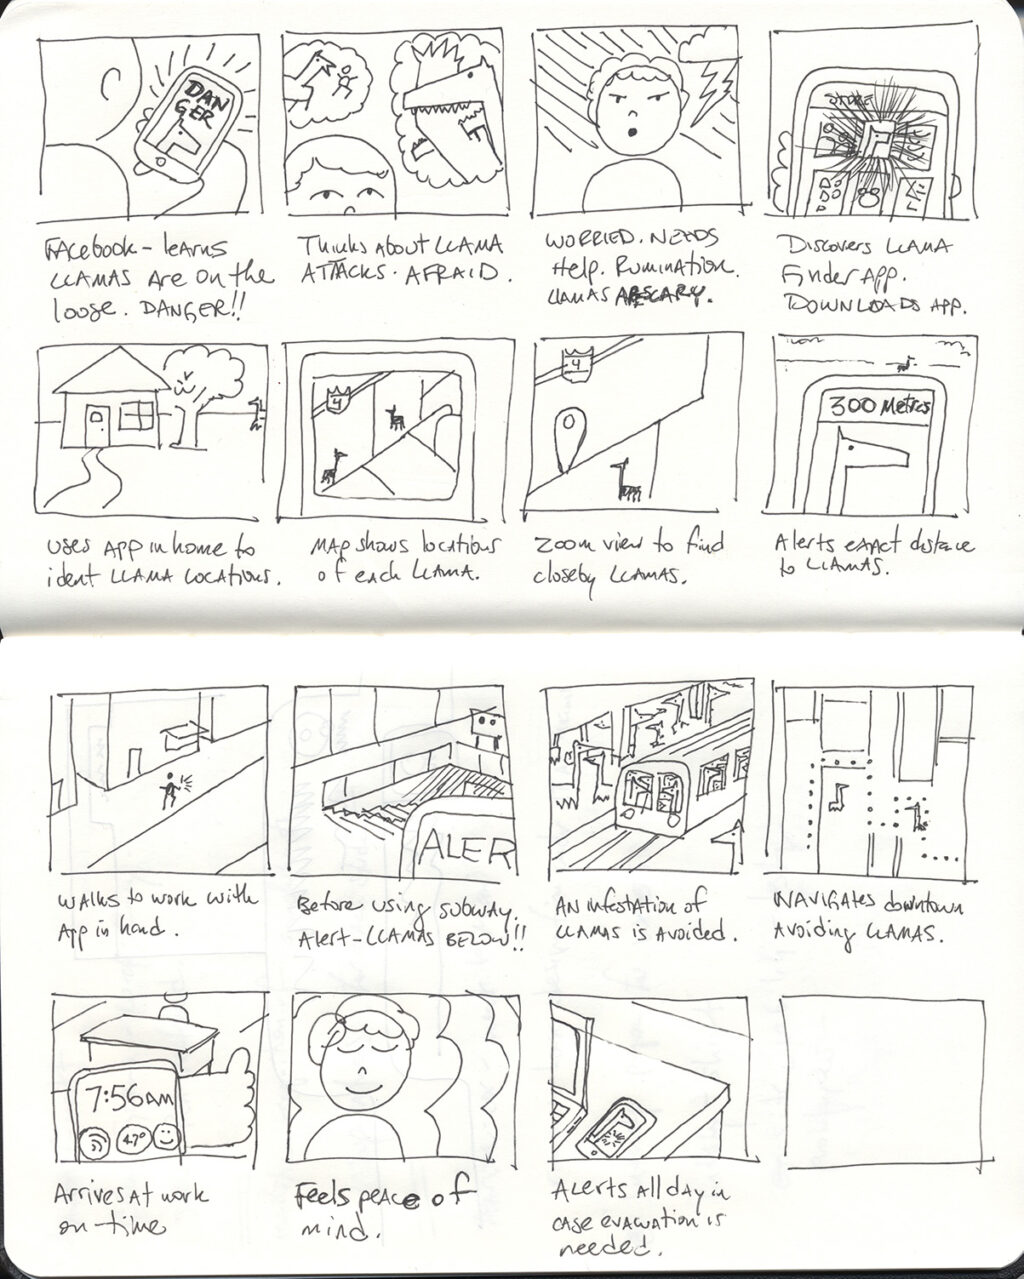 DAN
GER
Facebook - learns
LLAMAS are on the
loose. DANGER!!
Thinks about LLAMA
ATTACKS. AFRAID.
WORRIED. NEEDS
Help. Rumination.
LLAMAS ARE SCARY.
STORE
Discovers LLAMA
Finder App.
DOWNLOADS APP.
Uses App in home to
ident LLAMA locations.
4
Map shows locations
of each LLAMA.
4
Zoom view to find
closeby LLAMAS.
300 Metres
Alerts exact distace
to LLAMAS.
Walks to work with
App in hand.
ALER
Before using subway.
Alert - LLAMAS BELOW!!
AN infestation of
LLAMAS is avoided.
Navigates downtown
avoiding LLAMAS.
7:56AM
4.7°
Arrives at work
on-time
Feels peace of
mind.
Alerts all day in
case evacuation is
needed.